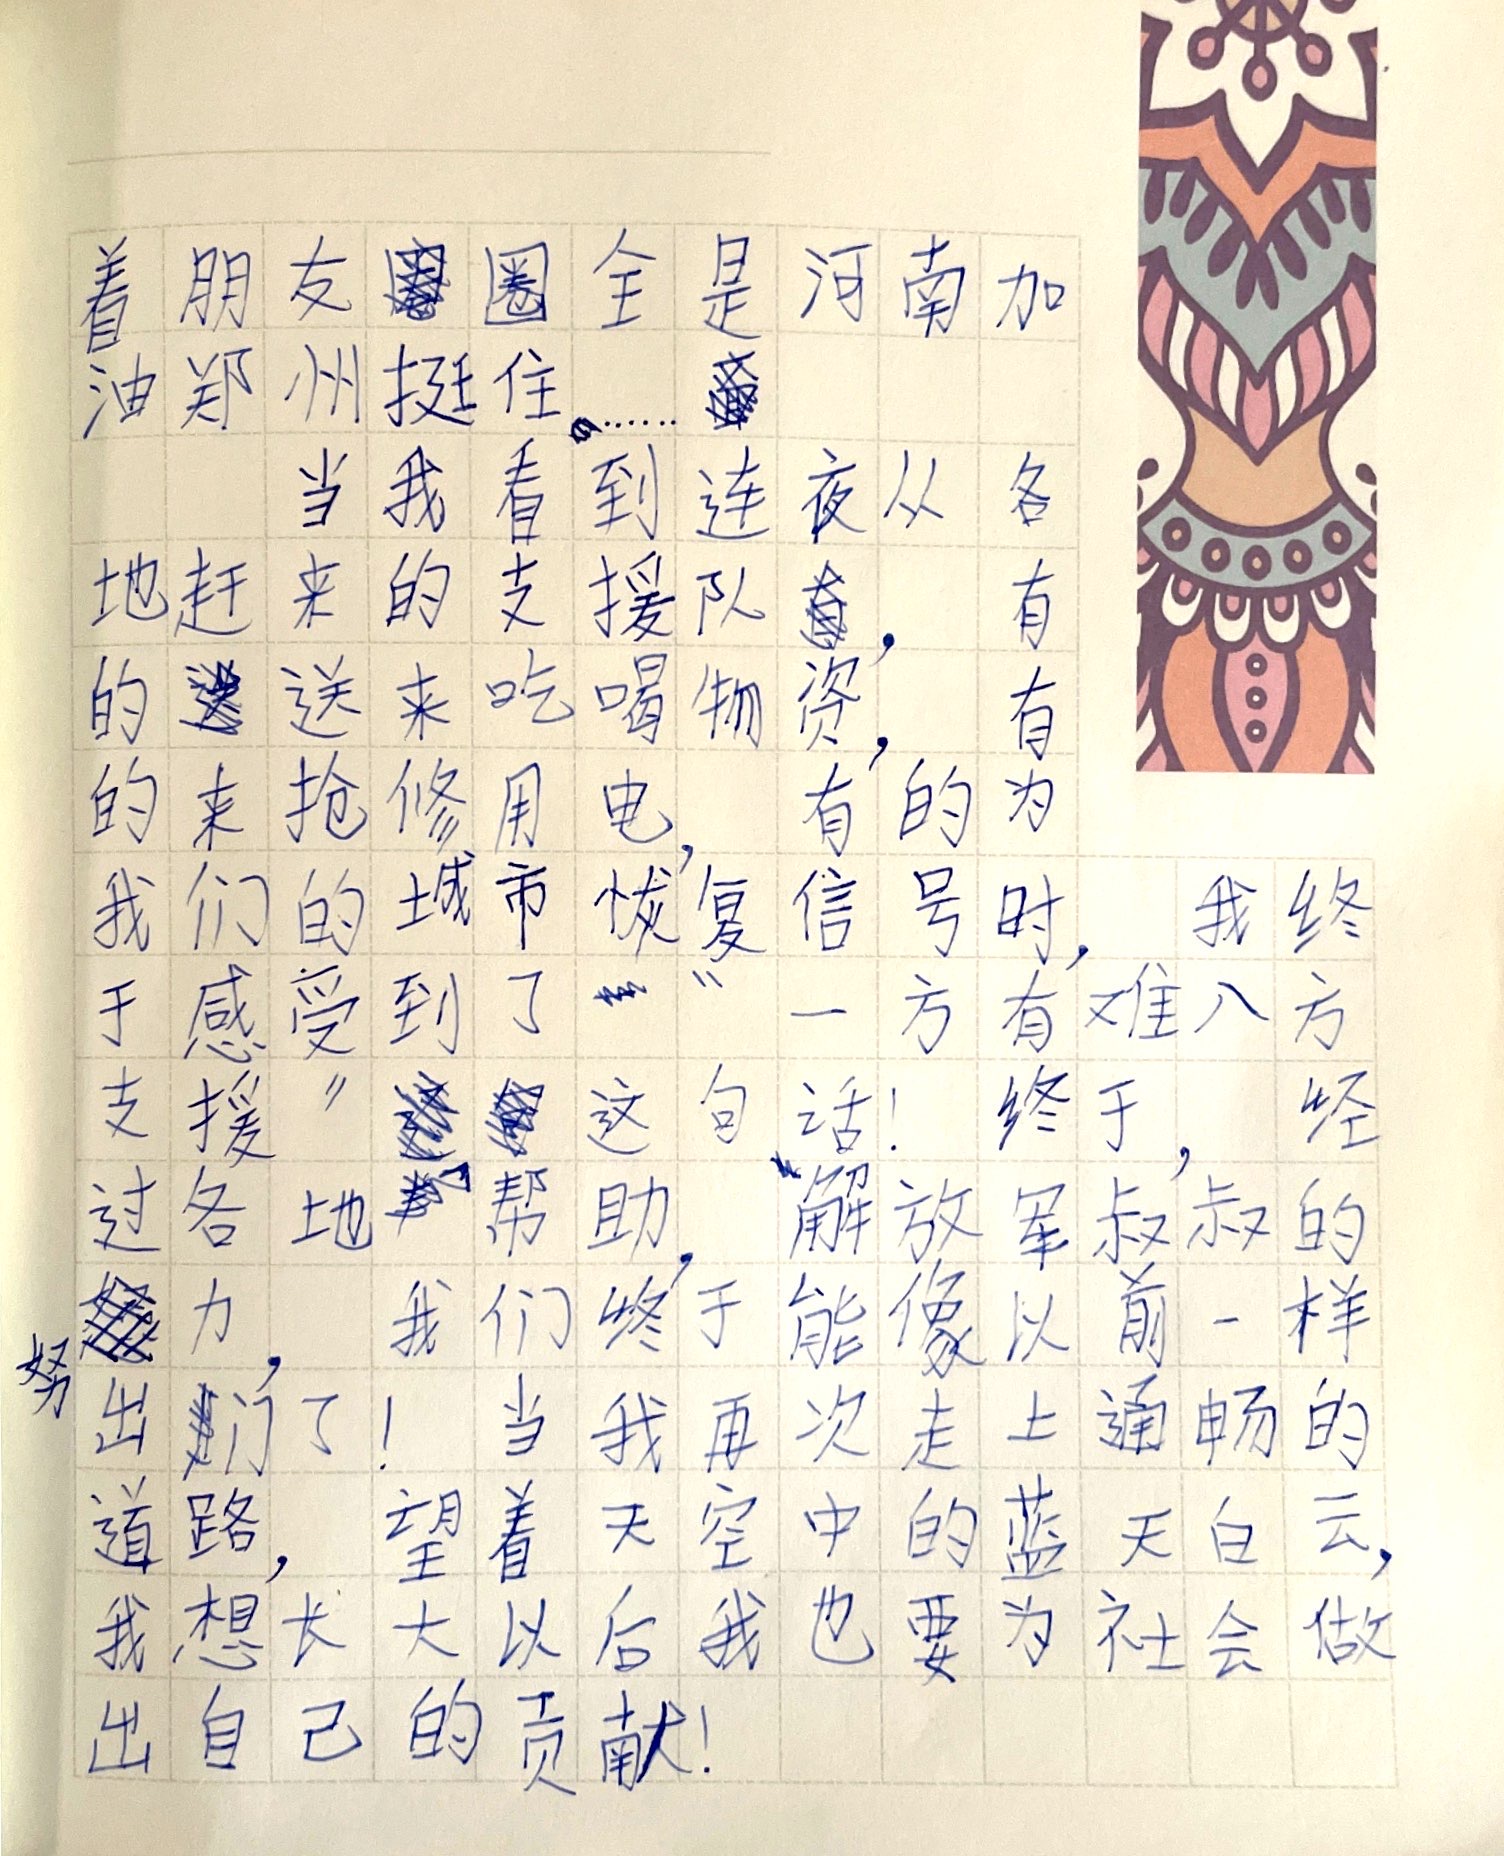 着朋友圈全是河南加
油郑州挺住……
当我看到连夜从各
地赶来的支援队，有
的送来吃喝物资，有
的来抢修用电，有的为
我们的城市恢复信号时，我终
于感受到了"一方有难八方
支援"这句话！终于，经
过各地帮助，解放军叔叔的
努力，我们终于能像以前一样
出门了！当我再次走上通畅的
道路，望着天空中的蓝天白云，
我想长大以后我也要为社会做
出自己的贡献！